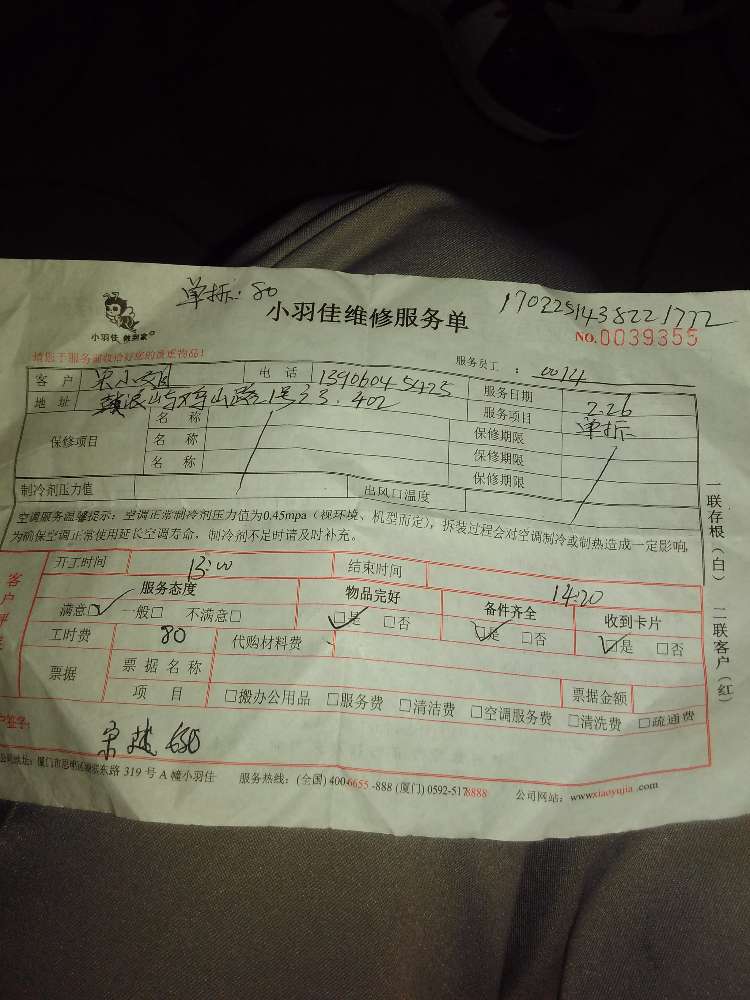 单拆：80
1702251438221772
小羽佳 做到家
小羽佳维修服务单
NO.0039355
请您于服务前收拾好您的贵重物品！
服务员工：0014
客户 电话 13906045425 服务日期 2.26
地址 21号之3.402 服务项目 单拆
保修项目 名称 保修期限
名称 保修期限
名称 保修期限
制冷剂压力值 出风口温度
空调服务温馨提示：空调正常制冷剂压力值为0.45mpa（视环境、机型而定），拆装过程会对空调制冷或制热造成一定影响，
为确保空调正常使用延长空调寿命，制冷剂不足时请及时补充。
一联存根（白） 二联客户（红）
客户评
开工时间 13:00 结束时间 14:20
服务态度 物品完好 备件齐全 收到卡片
满意☑ 一般□ 不满意□ ☑是 □否 ☑是 □否 ☑是 □否
工时费 80 代购材料费
票据 票据名称 票据金额
项目 □搬办公用品 □服务费 □清洁费 □空调服务费 □清洗费 □疏通费
户签字：
公司地址：厦门市思明区 东路319号A幢小羽佳 服务热线：(全国) 400-6655-888 (厦门) 0592-5178888 公司网站：www.xiaoyujia.com